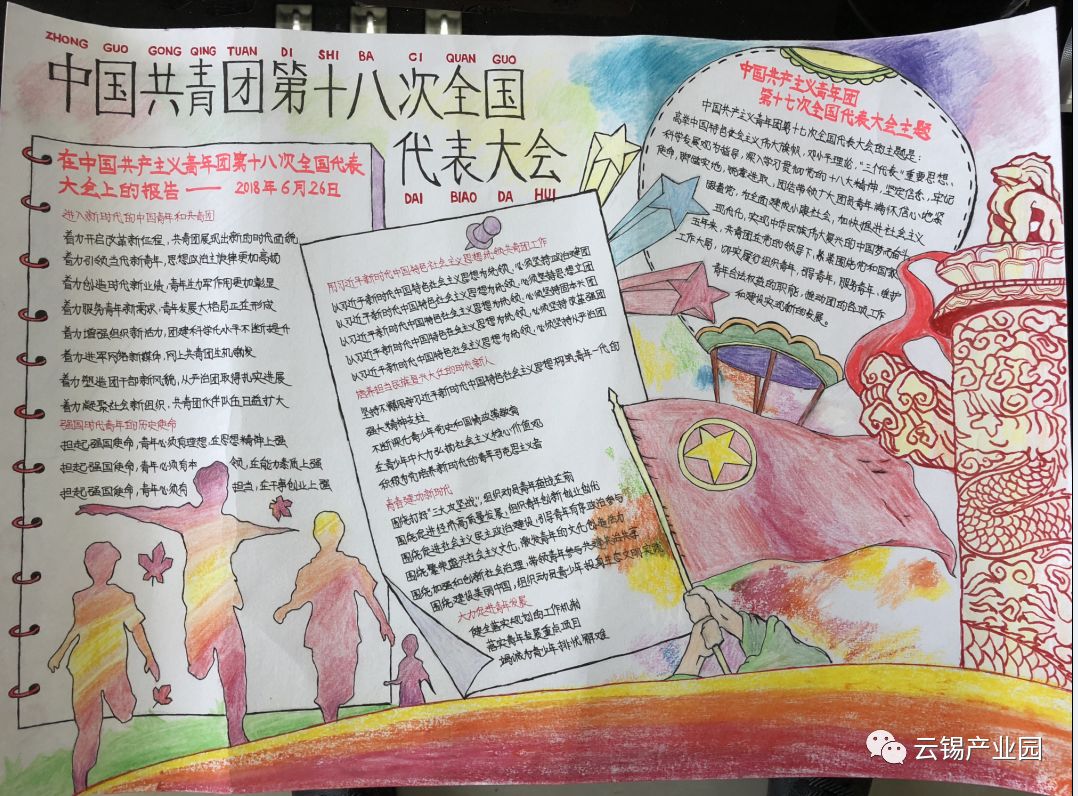 ZHONG GUO GONG QING TUAN DI SHI BA CI QUAN GUO
中国共青团第十八次全国
代表大会
DAI BIAO DA HUI
在中国共产主义青年团第十八次全国代表
大会上的报告—— 2018年6月26日
进入新时代的中国青年和共青团
着力开启改革新征程，共青团展现出新的时代面貌
着力引领当代新青年，思想政治主旋律更加高昂
着力创造时代新业绩，青年生力军作用更加彰显
着力服务青年新需求，青年发展大格局正在形成
着力增强组织新活力，团建科学化水平不断提升
着力进军网络新媒体，网上共青团生机勃发
着力塑造团干部新风貌，从严治团取得扎实进展
着力凝聚社会新组织，共青团伙伴队伍日益扩大
强国时代青年的历史使命
担起强国使命，青年必须有理想，在思想精神上强
担起强国使命，青年必须有本领，在能力素质上强
担起强国使命，青年必须有担当，在干事创业上强
用习近平新时代中国特色社会主义思想统领共青团工作
以习近平新时代中国特色社会主义思想为统领，必须坚持政治建团
以习近平新时代中国特色社会主义思想为统领，必须坚持思想立团
以习近平新时代中国特色社会主义思想为统领，必须坚持固本大团
以习近平新时代中国特色社会主义思想为统领，必须坚持改革强团
以习近平新时代中国特色社会主义思想为统领，必须坚持从严治团
培养担当民族复兴大任的时代新人
坚持不懈用习近平新时代中国特色社会主义思想构筑青年一代的
强大精神支柱
不断深化青少年党史和国情政策教育
在青少年中大力弘扬社会主义核心价值观
积极为党培养新时代的青年马克思主义者
青春建功新时代
围绕打好"三大攻坚战"，组织动员青年奋战在前
围绕促进经济高质量发展，组织青年创新创业创优
围绕促进社会主义民主政治建设，引导青年有序政治参与
围绕繁荣盛兴社会主义文化，激发青年的文化创造活力
围绕加强和创新社会治理，带领青年参与共建共治共享
围绕建设美丽中国，组织动员青少年投身生态文明实践
大力促进青年发展
健全落实规划的工作机制
落实青年发展重点项目
竭诚为青少年排忧解难
中国共产主义青年团
第十七次全国代表大会主题
中国共产主义青年团第十七次全国代表大会的主题是：
高举中国特色社会主义伟大旗帜，邓小平理论，"三个代表"重要思想、
科学发展观为指导，深入学习贯彻党的十八大精神，坚定信念，牢记
使命，脚踏实地，锐意进取，团结带领广大团员青年满怀信心地紧
跟着党，为全面建成小康社会，加快推进社会主义
现代化，实现中华民族伟大复兴的中国梦而奋斗
五年来，共青团在党的领导下，紧紧围绕党和国家
工作大局，切实履行组织青年，引导青年，服务青年、维护
青年合法权益的职能，推动团的各项工作
和建设实现新的发展。
云锡产业园